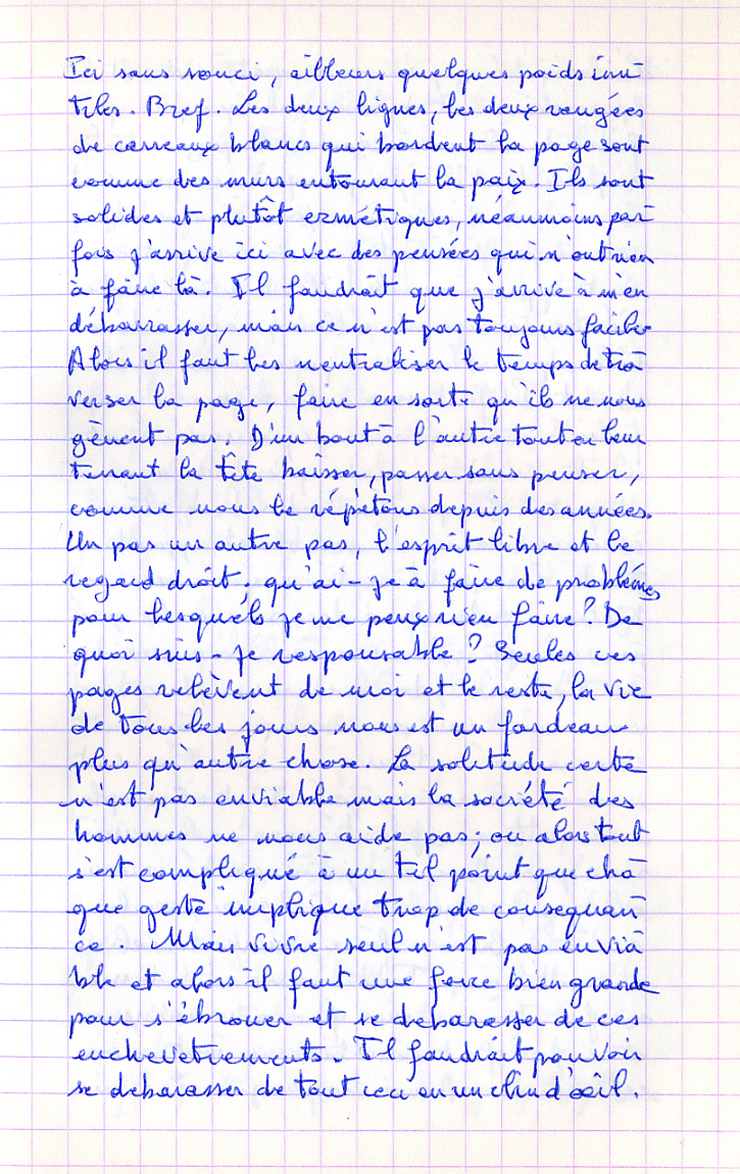 Ici sans souci, ailleurs quelques poids inu-
tiles. Bref. Les deux lignes, les deux rangées
de carreaux blancs qui bordent la page sont
comme des murs entourant la paix. Ils sont
solides et plutôt ermétiques, néaumoins par-
fois j'arrive ici avec des pensées qui n'ont rien
à faire là. Il faudrait que j'arrive à m'en
débarrasser, mais ce n'est pas toujours facile.
Alors il faut les neutraliser le temps de tra-
verser la page, faire en sorte qu'ils ne nous
gènent pas. D'un bout à l'autre tout en leur
tenant la tête baisser, passer sans penser,
comme nous le répétons depuis des années.
Un pas un autre pas, l'esprit libre et le
regard droit; qu'ai-je à faire de problémes
pour lesquels je ne peux rien faire? De
quoi suis-je responsable? Seules ces
pages relèvent de moi et le reste, la vie
de tous les jours nous est un fardeau
plus qu'autre chose. La solitude certe
n'est pas enviable mais la société des
hommes ne nous aide pas; ou alors tout
s'est compliqué à un tel point que cha-
que geste implique trop de consequan-
ce. Mais vivre seul n'est pas envia-
ble et alors il faut une force bien grande
pour s'ébrouer et se debarasser de ces
enchevetrements. Il faudrait pouvoir
se debarasser de tout ceci en un clin d'œil.